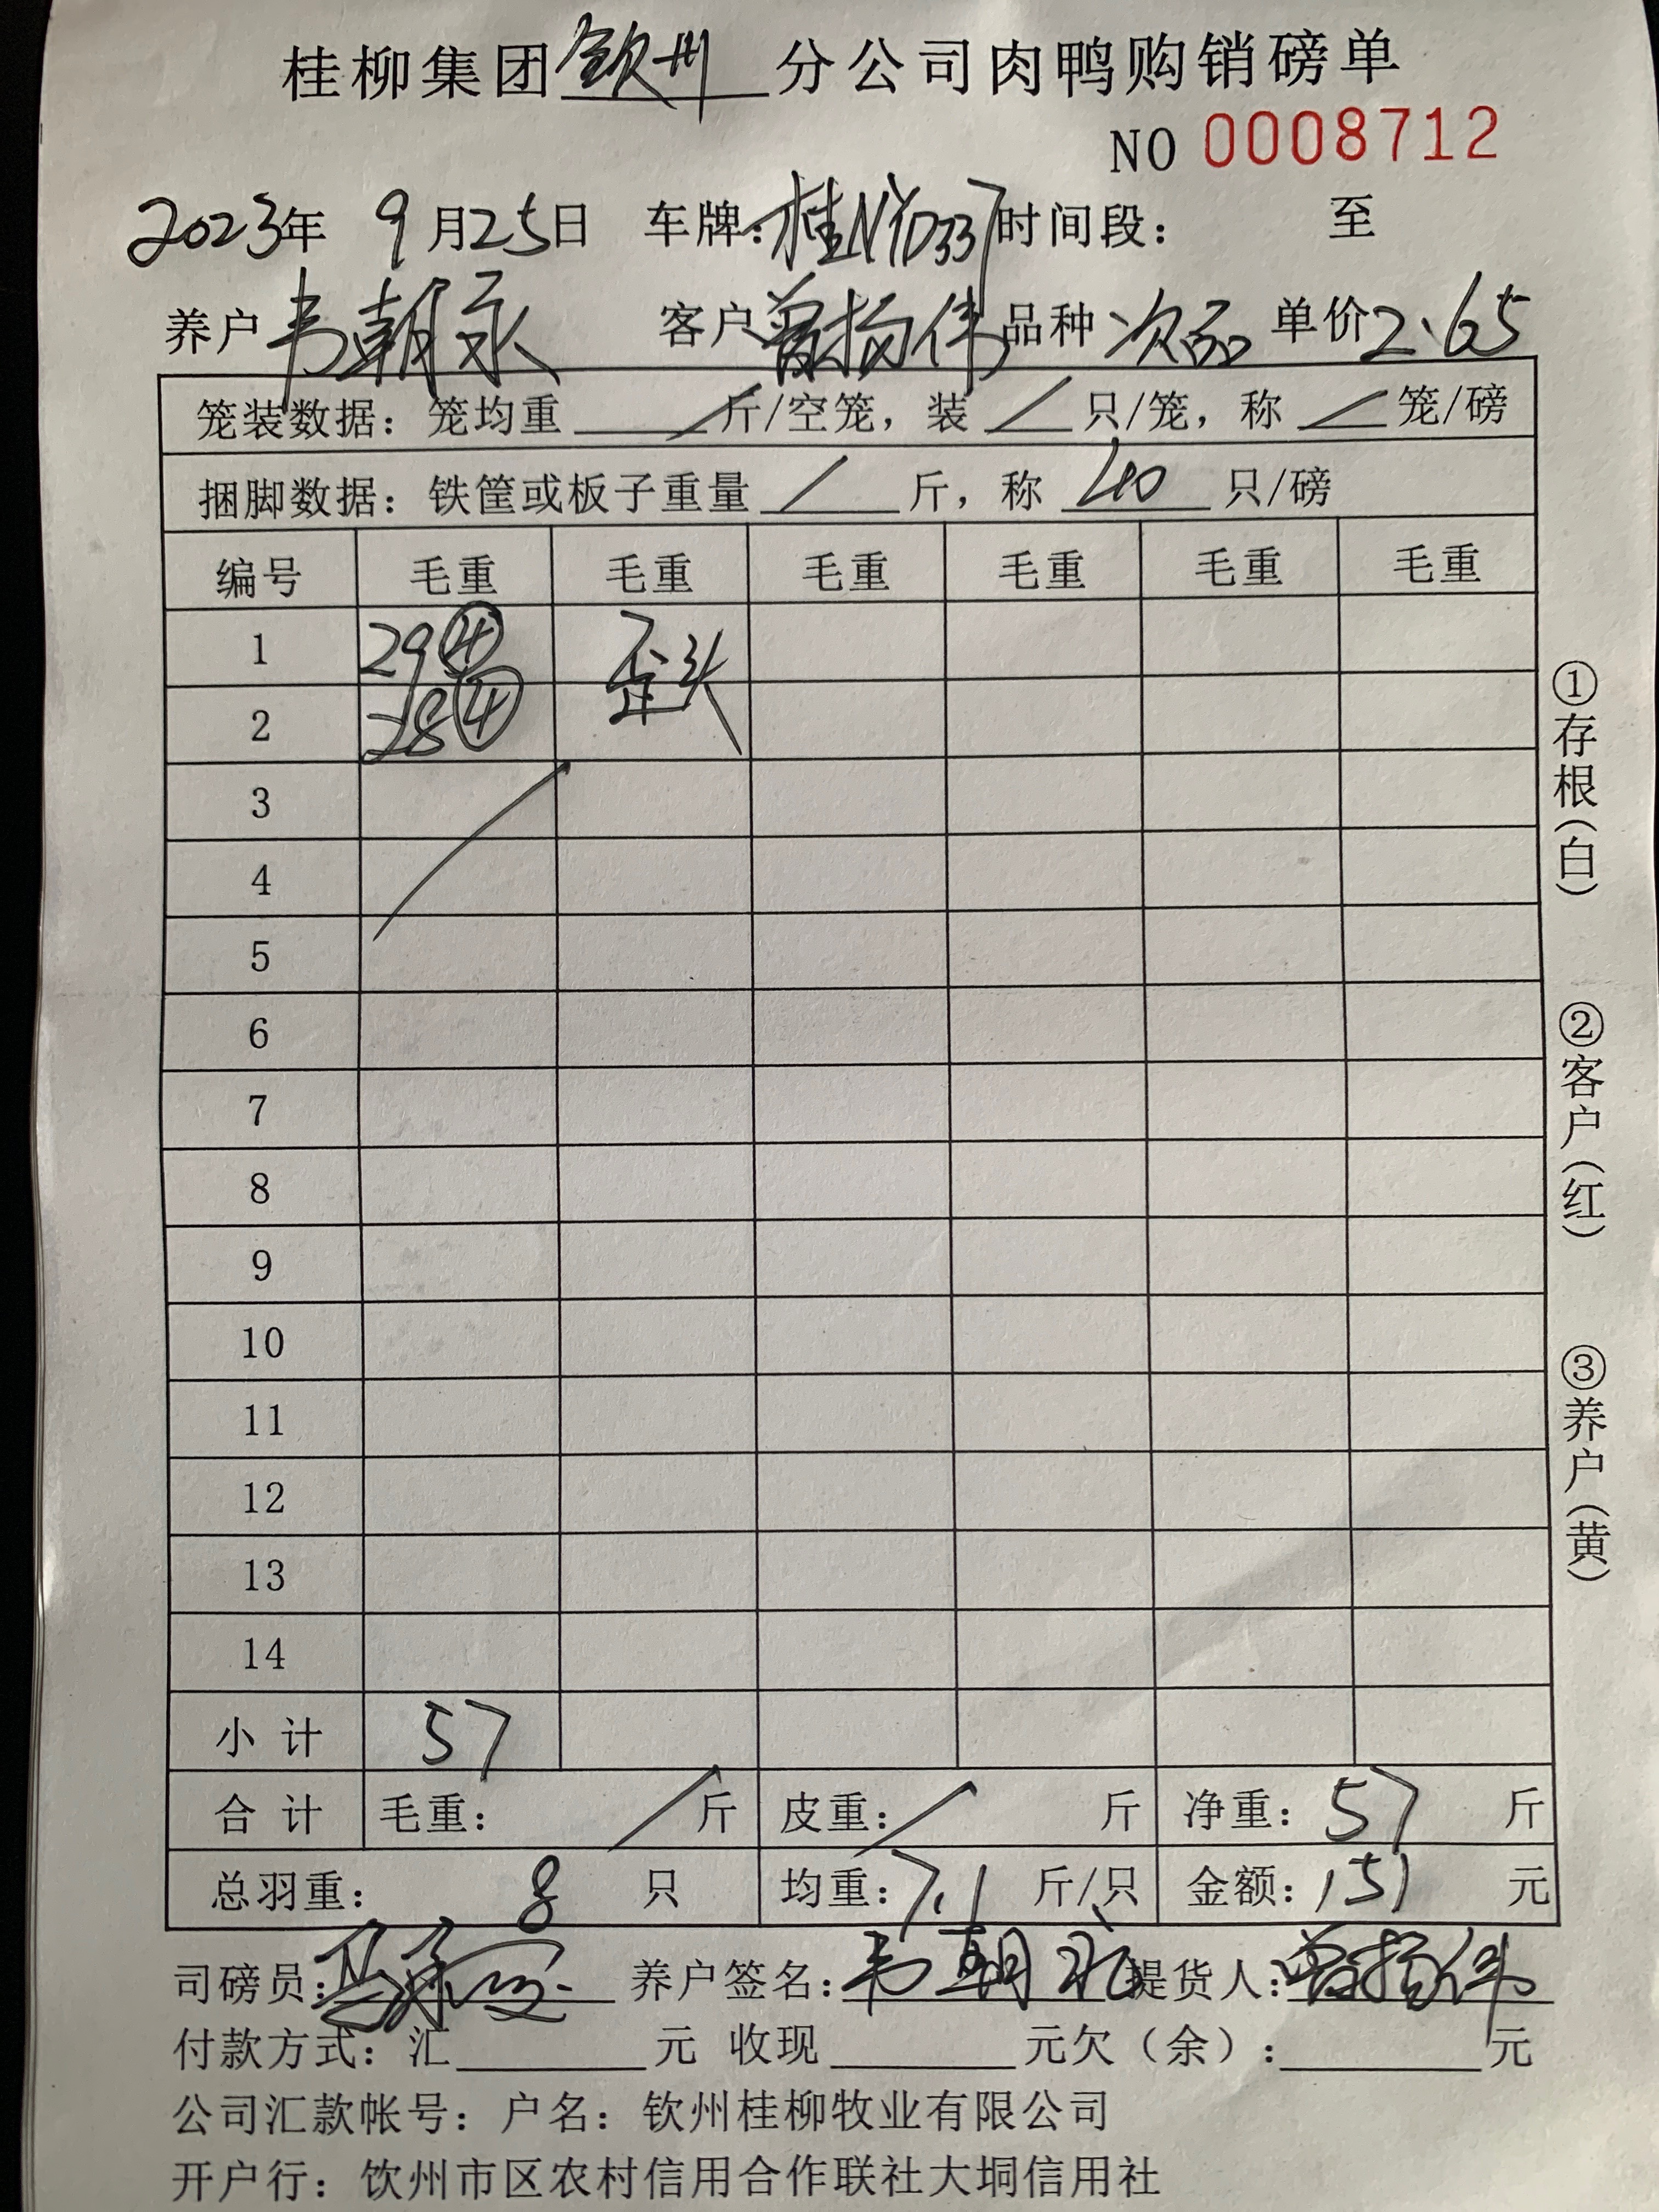 桂柳集团 钦州 分公司肉鸭购销磅单
NO 0008712
2023年 9月25日 车牌：桂NYD337 时间段： 至
养户 韦朝永 客户 曾扬伟 品种 次品 单价 2.65
笼装数据：笼均重 / 斤/空笼，装 / 只/笼，称 / 笼/磅
捆脚数据：铁筐或板子重量 / 斤，称 40 只/磅
编号 毛重 毛重 毛重 毛重 毛重 毛重
1 29④ 歪头
2 28④
3
4
5
6
7
8
9
10
11
12
13
14
小计 57
合计 毛重： / 斤 皮重： / 斤 净重：57 斤
总羽重： 8 只 均重：7.1 斤/只 金额：151 元
司磅员： 养户签名：韦朝永 提货人：曾扬伟
付款方式：汇 元 收现 元欠（余）： 元
公司汇款帐号：户名：钦州桂柳牧业有限公司
开户行：钦州市区农村信用合作联社大垌信用社
①存根（白）
②客户（红）
③养户（黄）